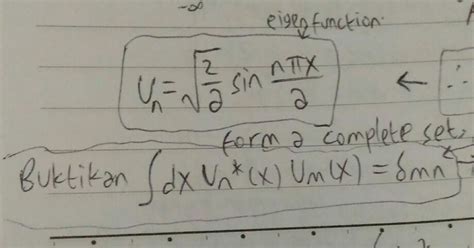 -∞
eigenfunction.
Uₙ = √(2/a) sin nπx/a ← ∴
form a complete set,
Buktikan ∫dx Uₙ*(x) Uₘ(x) = δmn